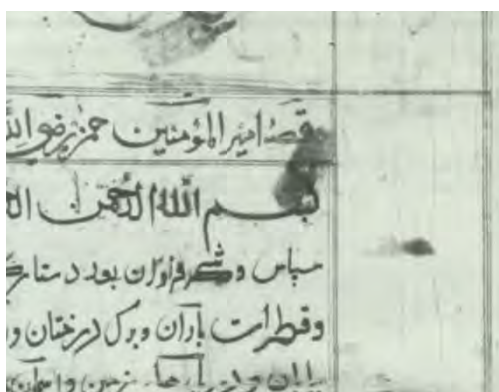 قصهٔ امیر المؤمنین حمزه رضی الله
بسم الله الرحمن
سپاس و شکر فراوان بعدد ستار
وقطرات باران و برک درختان و
زمین و